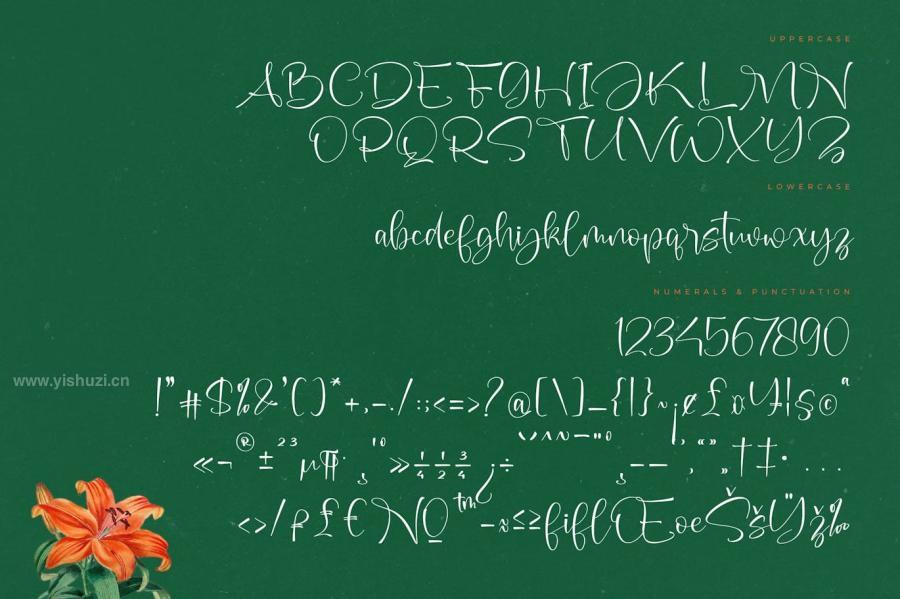 UPPERCASE
ABCDEFGHIJKLMN
OPQRSTUVWXYZ
LOWERCASE
abcdefghijklmnopqrstuvwxyz
NUMERALS & PUNCTUATION
1234567890
www.yishuzi.cn
!"#$%&'()*+,-./:;<=>?@[\]_{|}~¡¢£¤¥¦§©ª
«¬®±²³µ¶·¸¹º»¼½¾¿÷
‚ „ †‡•…
‹›⁄₣₤€№™−≈≤≥fiflŒœŠšŸž‰